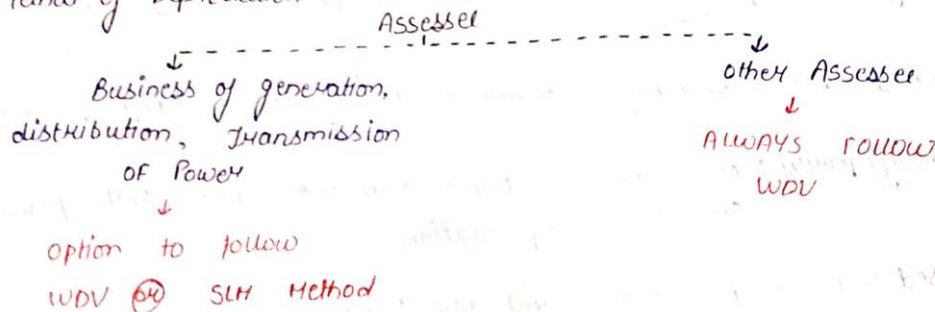 of
Assessee
Business of generation,
distribution, Transmission
of Power
option to follow
WDV or SLM Method
other Assessee
ALWAYS FOLLOW
WDV